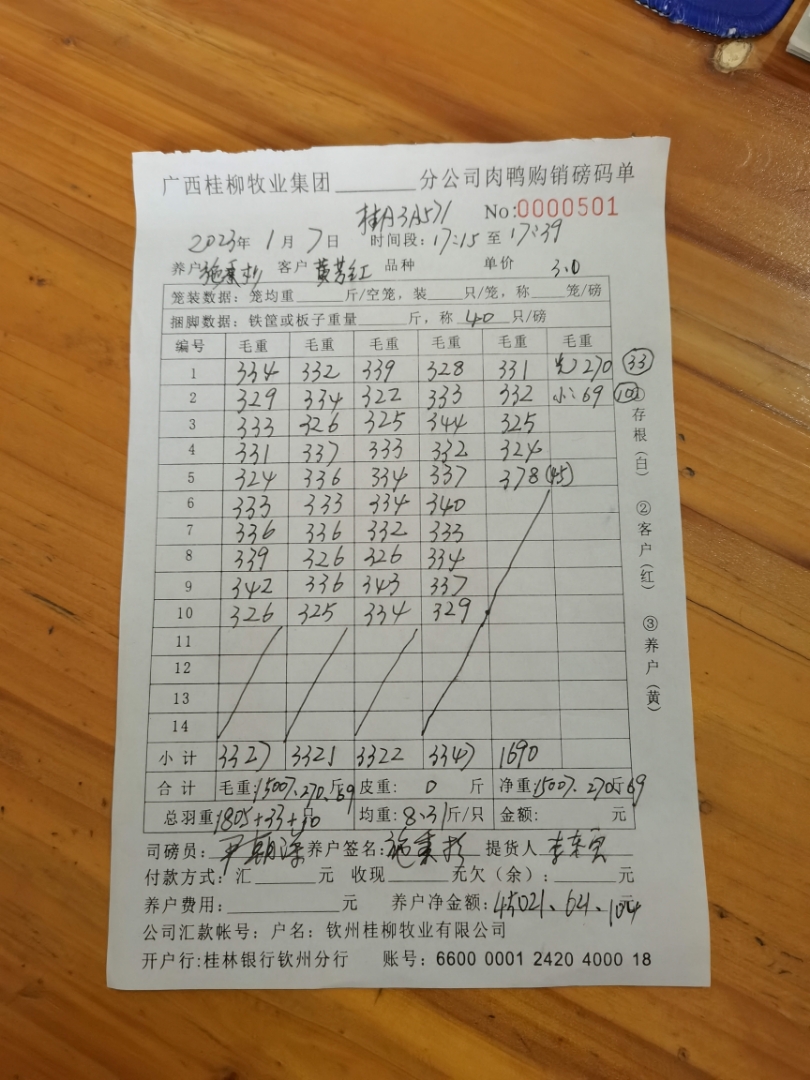 广西桂柳牧业集团________分公司肉鸭购销磅码单
No:0000501
2023年 1月 7日 时间段: 17:15 至 17:39
养户 客户 黄芳红 品种 单价 3.0
笼装数据: 笼均重______斤/空笼, 装____只/笼, 称____笼/磅
捆脚数据: 铁筐或板子重量______斤, 称 40 只/磅
编号 毛重 毛重 毛重 毛重 毛重 毛重
1 334 332 339 328 331 270 33
2 329 334 322 333 332 小: 69
3 333 326 325 344 325
4 331 337 333 332 324
5 324 336 334 337 378 (45)
6 333 333 334 340
7 336 336 332 333
8 339 326 326 334
9 342 336 343 337
10 326 325 334 329
11
12
13
14
小计 3327 3321 3322 3347 1690
合计 毛重: 15007、270、69 斤 皮重: 0 斤 净重: 15007、270 斤 69
总羽重: 1805+33+10 只 均重: 8.31 斤/只 金额: 元
司磅员: 养户签名: 提货人
付款方式: 汇______元 收现______元欠(余): ______元
养户费用: ________元 养户净金额: 45021、621、104 元
公司汇款帐号: 户名: 钦州桂柳牧业有限公司
开户行:桂林银行钦州分行 账号: 6600 0001 2420 4000 18
①存根(白) ②客户(红) ③养户(黄)